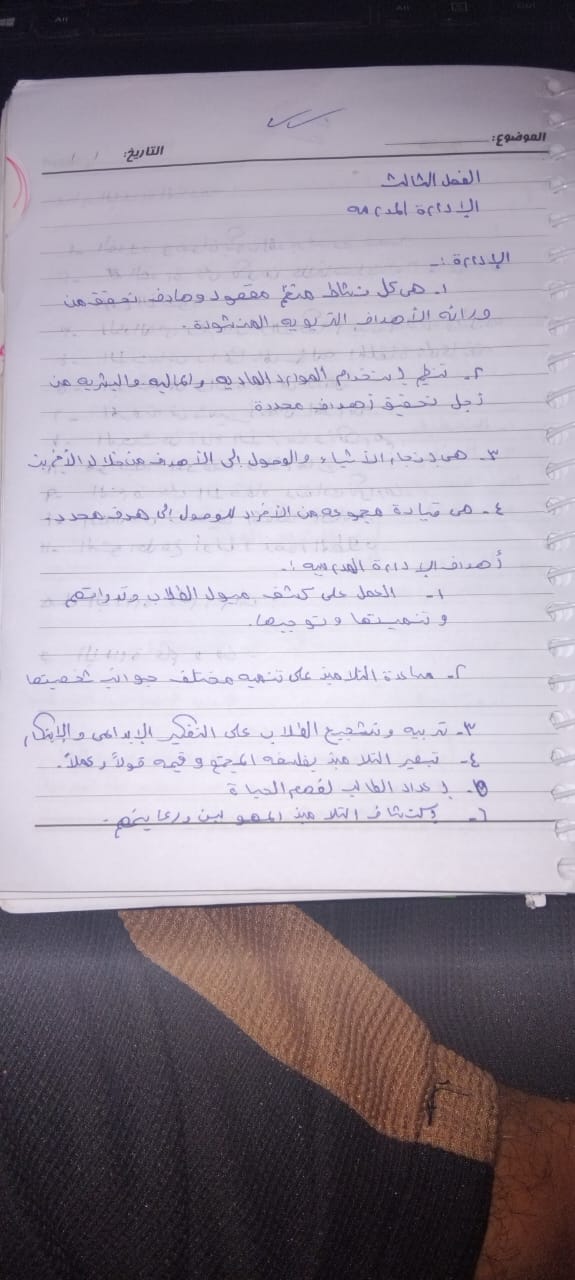 الموضوع:
التاريخ: / /
الفصل الثالث
الإدارة المدرسيه
الإدارة :-
١- هي كل نشاط منظم مقصود وهادف تحقق من
ورائه الأهداف التربويه المنشودة.
٢- تنظيم إستخدام الموارد الماديه والماليه والبشريه من
أجل تحقيق أهداف محددة.
٣- هي إنجاز الأشياء والوصول إلى الأهداف من خلال الأخرين
٤- هي قيادة مجموعه من الأفراد للوصول إلى هدف محدد.
أهداف الإدارة المدرسيه :-
١- العمل على كشف ميول الطلاب وقدراتهم
وتنميتها وتوجيهها.
٢- مساعدة التلاميذ على تنميه مختلف جوانب شخصيتها
٣- تربيه وتشجيع الطلاب على التفكير الإبداعي والإبتكار
٤- تبصير التلاميذ بفلسفه المجتمع وقيمه قولاً وعملاً.
٥- إعداد الطالب لفهم الحياة
٦- إكتشاف التلاميذ الموهوبين ورعايتهم.